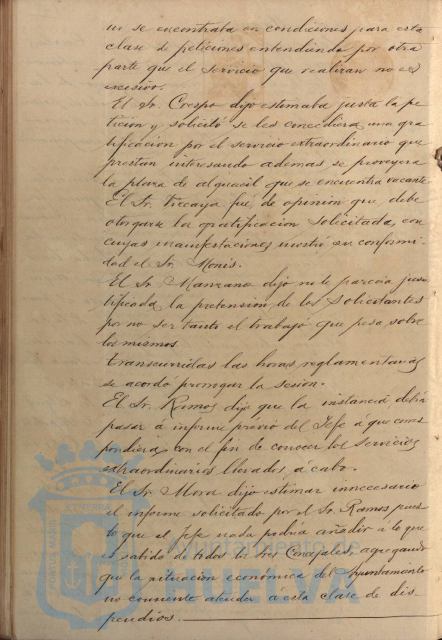 ni se encontraba en condiciones para esta
clase de peticiones entendiendo por otra
parte que el servicio que realizan no es
excesivo.
El Sr. Crespo dijo estimaba justa la pe-
tición y solicitó se les concediera una gra-
tificación por el servicio extraordinario que
prestan interesando además se proveyera
la plaza de alguacil que se encuentra vacante
El Sr. fué de opinión que debe
otorgarse la gratificación solicitada, con
cuyas manifestaciones mostró su conformi-
dad el Sr. Monis.
El Sr. Manzano dijo no le parecía jus-
tificada la pretensión de los solicitantes
por no ser tanto el trabajo que pesa sobre
los mismos.
Transcurridas las horas reglamentarias
se acordó prorrogar la sesión.
El Sr. Ramos dijo que la instancia debía
pasar á informe previo del Jefe á que corres-
pondiera con el fin de conocer los servicios
extraordinarios llevados á cabo.
El Sr. Mora dijo estimar innecesario
el informe solicitado por el Sr. Ramos pues-
to que el Jefe nada podría añadir á lo que
es sabido de todos los Sres Concejales, agregando
que la situación económica del Ayuntamiento
no consiente atender á esta clase de dis-
pendios.
Ayuntamiento de
HUELVA